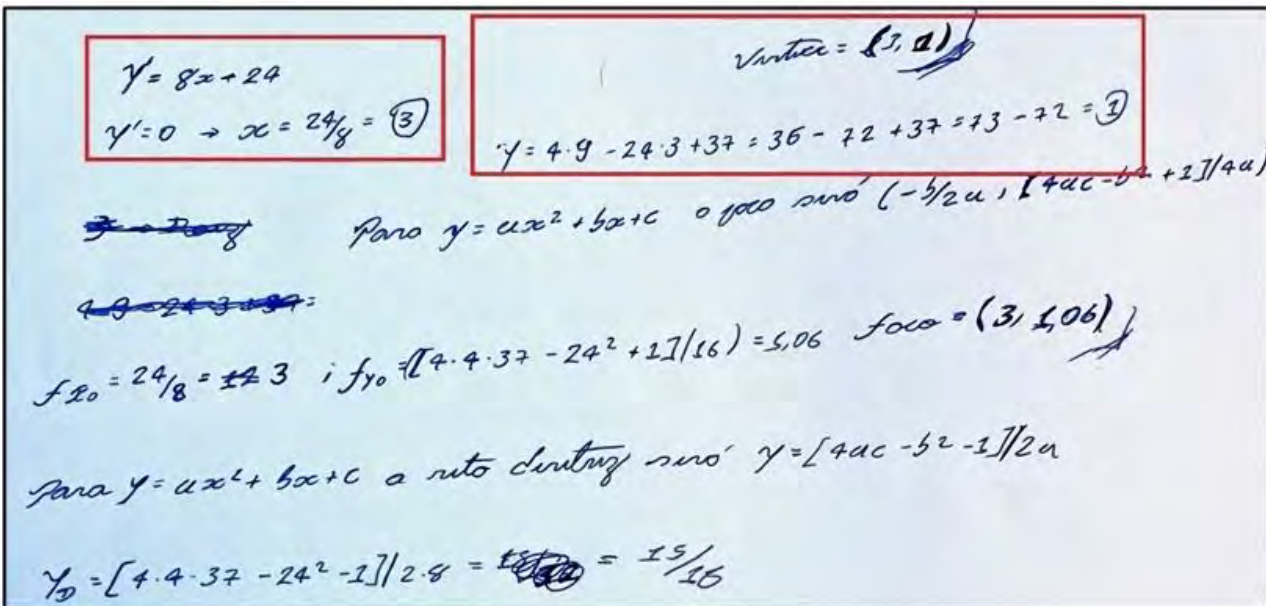 y' = 8x + 24
y' = 0 → x = 24/8 = 3
Vertice = (3, 1)
y = 4·9 - 24·3 + 37 = 36 - 72 + 37 = 73 - 72 = 1
Para y = ax² + bx + c o foco será (-b/2a, [4ac - b² + 1]/4a)
4·9 - 24·3 + 37 =
fx₀ = 24/8 = 12 3 ; fy₀ = ([4·4·37 - 24² + 1]/16) = 1,06 foco = (3, 1,06)
Para y = ax² + bx + c a reta diretriz será y = [4ac - b² - 1]/2a
y_D = [4·4·37 - 24² - 1]/2·8 = = 15/16